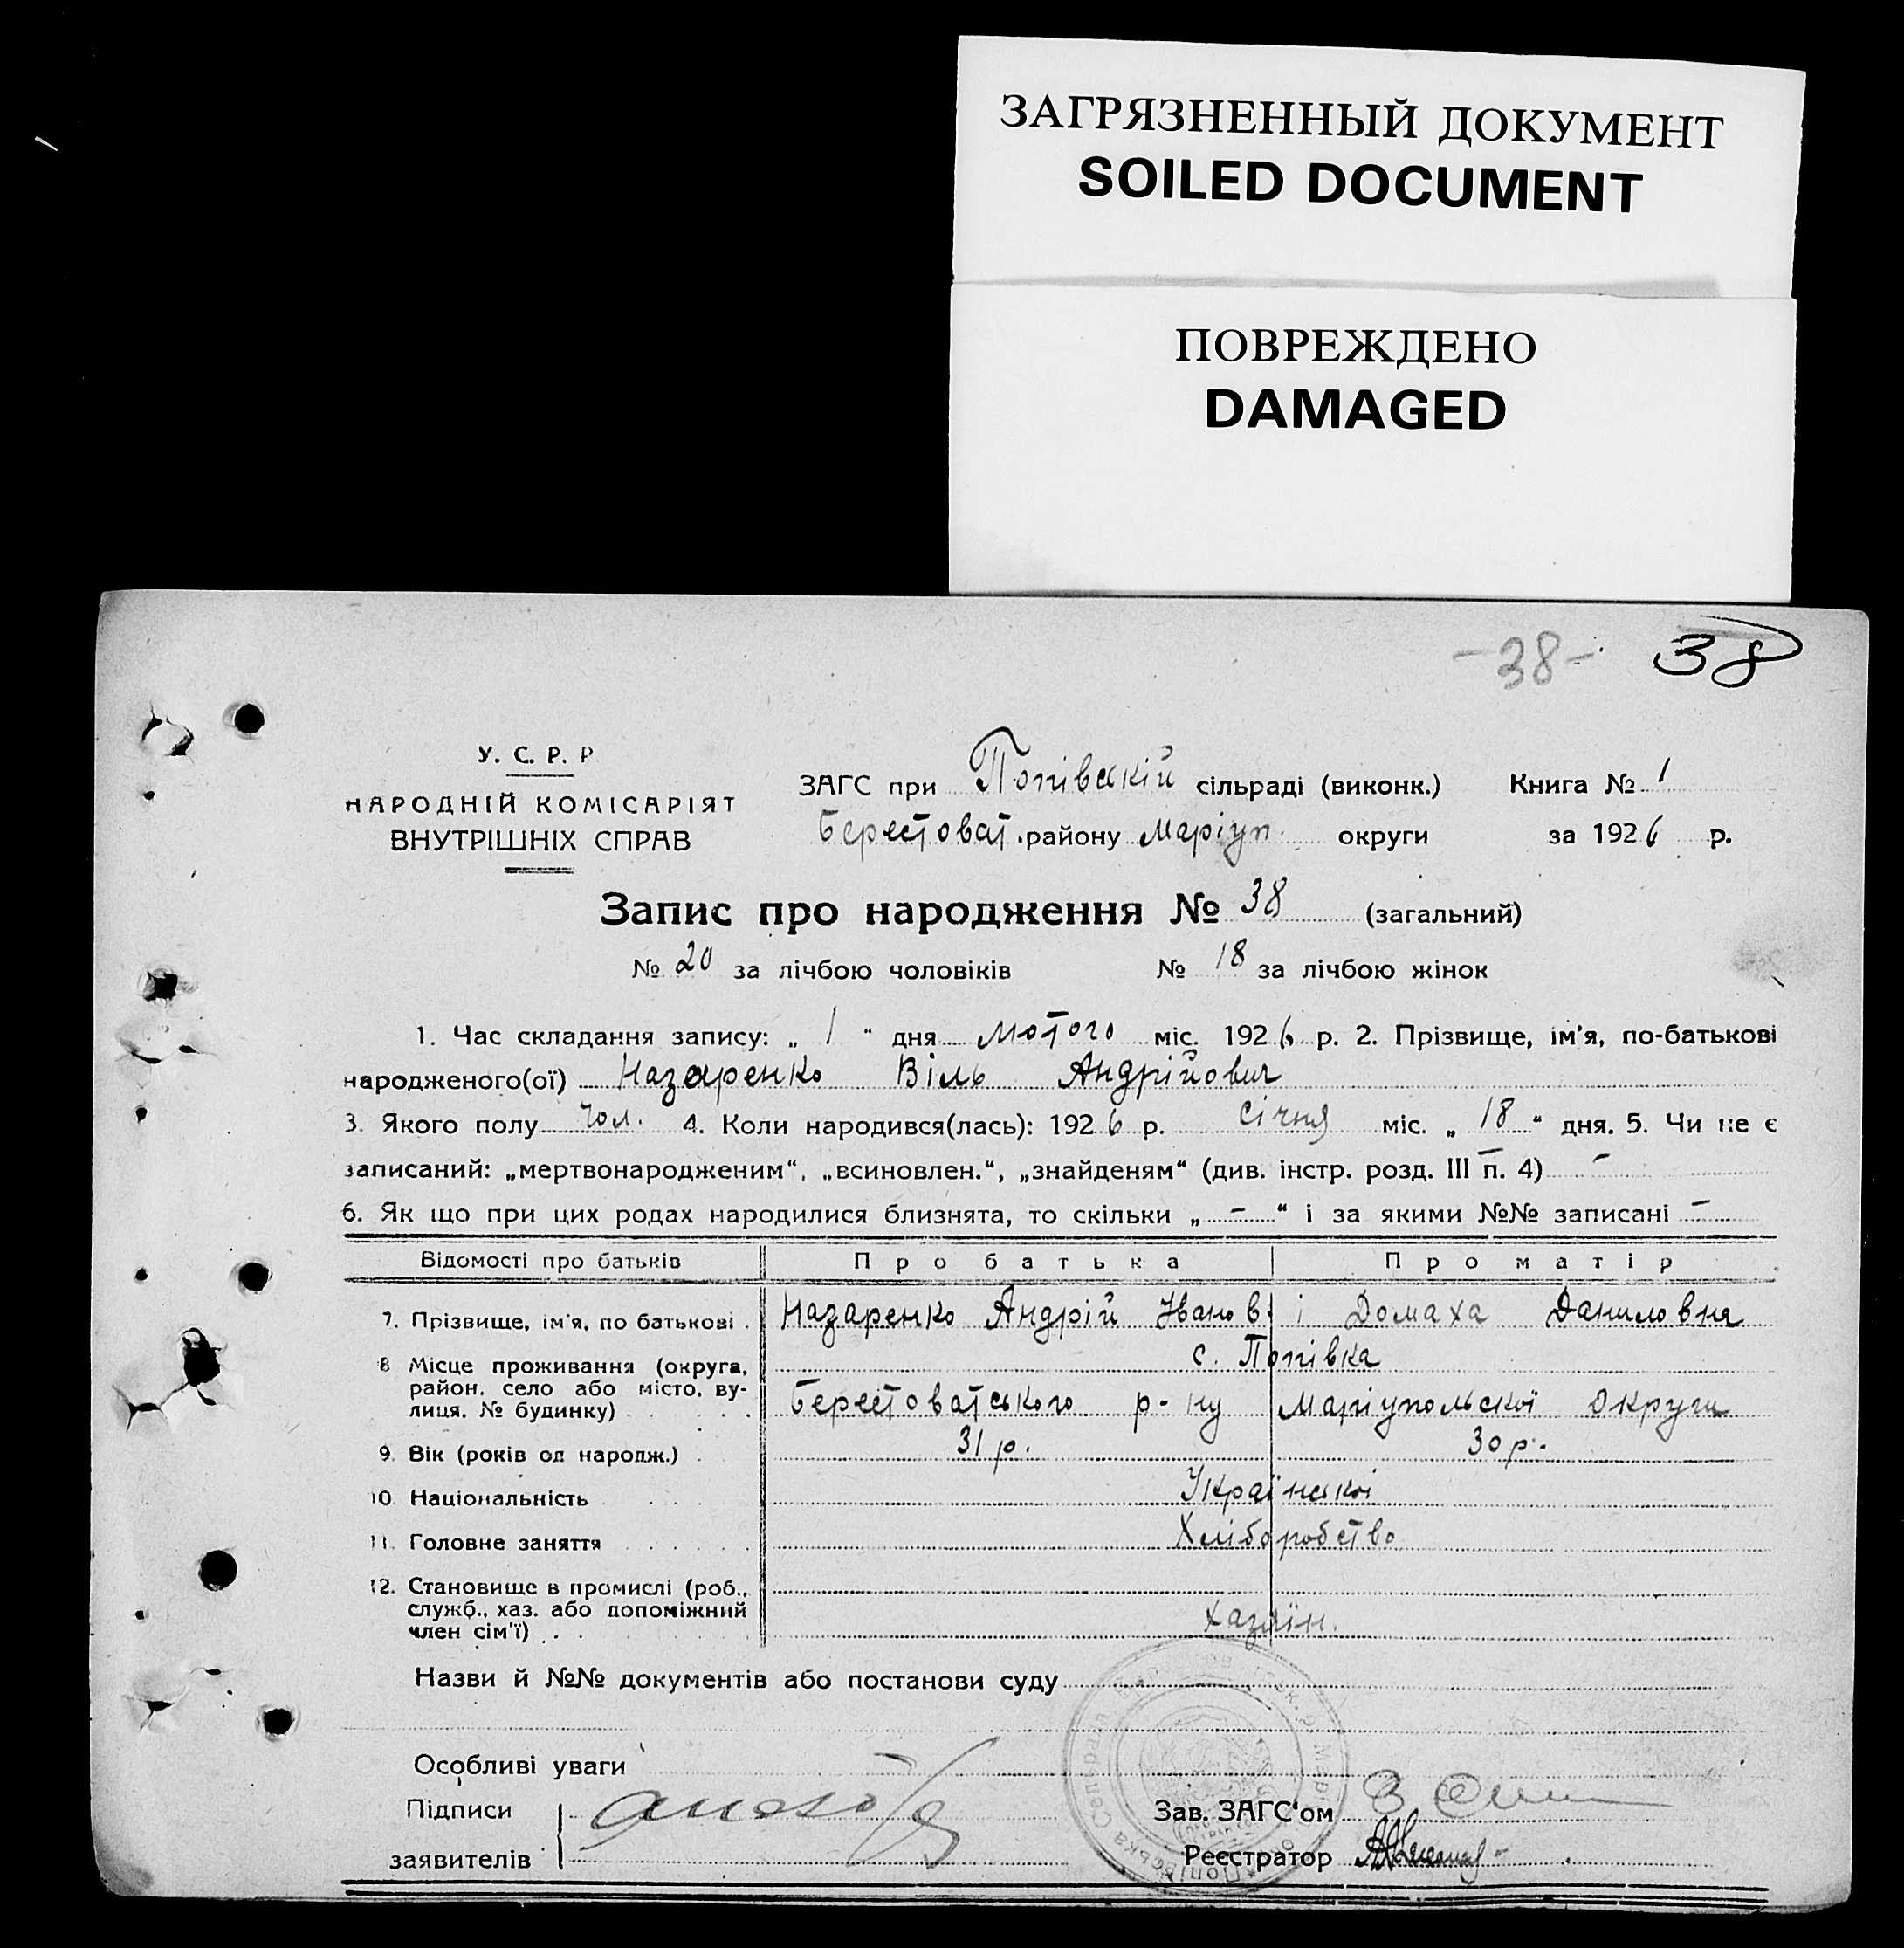 ЗАГРЯЗНЕННЫЙ ДОКУМЕНТ
SOILED DOCUMENT
ПОВРЕЖДЕНО
DAMAGED
-38- 38
У. С. Р. Р
НАРОДНІЙ КОМІСАРІЯТ
ВНУТРІШНІХ СПРАВ
ЗАГС при Попівській сільраді (виконк.) Книга № 1
Берестоват. району Маріуп. округи за 1926 р.
Запис про народження № 38 (загальний)
№ 20 за лічбою чоловіків № 18 за лічбою жінок
1. Час складання запису: „ 1 “ дня лютого міс. 1926 р. 2. Прізвище, ім'я, по-батькові
народженого(ої) Назаренко Віль Андрійович
3. Якого полу чол. 4. Коли народився(лась): 1926 р. січня міс. „ 18 “ дня. 5. Чи не є
записаний: „мертвонародженим“, „всиновлен.“, „знайденям“ (див. інстр. розд. III п. 4) -
6. Як що при цих родах народилися близнята, то скільки „ - “ і за якими №№ записані -
Відомості про батьків Про батька Про матір
7. Прізвище, ім'я, по батькові . Назаренко Андрій Іванов. і Домаха Даниловна
8 Місце проживання (округа, с. Попівка
район, село або місто, ву-
лиця, № будинку) Берестоватського р-ну Маріупольскої округи
9. Вік (років од народж.) 31 р. 30 р.
10. Національність Української
11. Головне заняття Хліборобство
12. Становище в промислі (роб.,
служб., хаз. або допоміжний
член сім'ї) . . Хазяїн.
Назви й №№ документів або постанови суду
Особливі уваги
Підписи
Зав. ЗАГС'ом
заявителів
Реєстратор